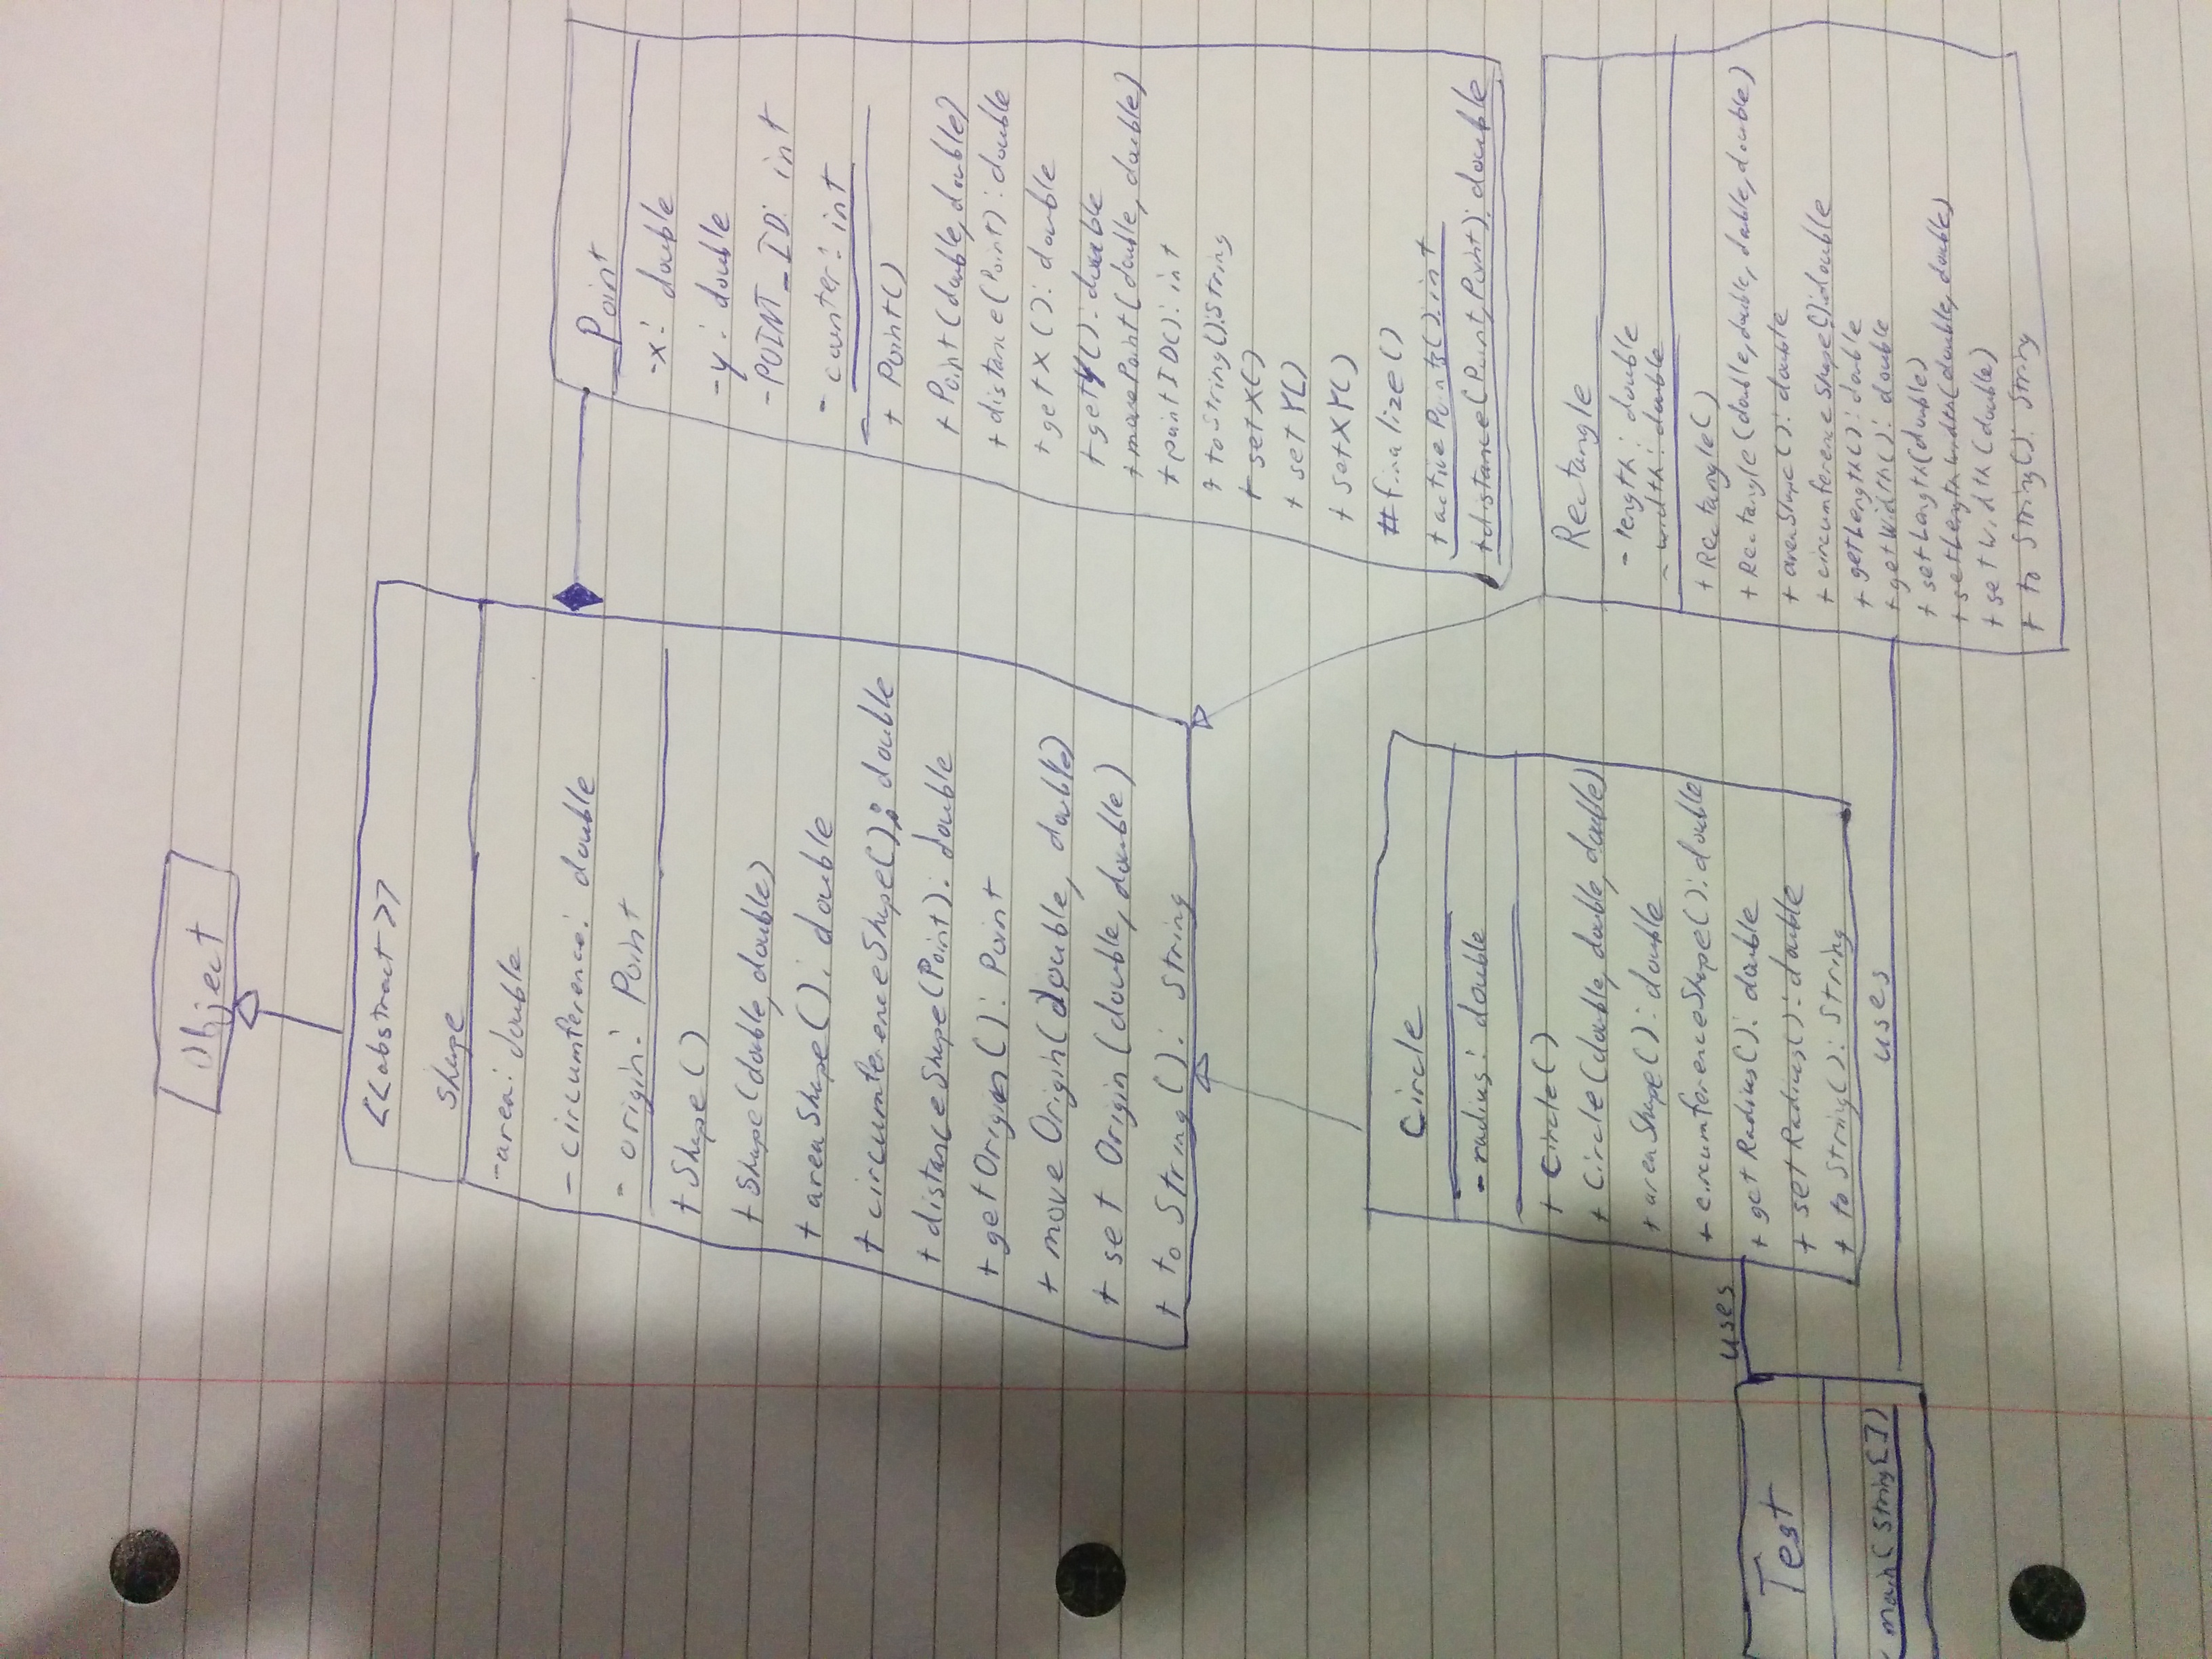 Object
<<abstract>>
Shape
-area: double
- circumference: double
- origin: Point
+ Shape()
+ Shape(double, double)
+ areaShape(): double
+ circumferenceShape(): double
+ distanceShape(Point): double
+ getOrigin(): Point
+ move Origin(double, double)
+ set Origin(double, double)
+ to String(): String
Point
-x: double
-y: double
-POINT_ID: int
- counter: int
+ Point()
+ Point(double, double)
+ distance(Point): double
+ getX(): double
+ getY(): double
+ movePoint(double, double)
+ pointID(): int
+ toString():String
+ setX()
+ setY()
+ setXY()
#finalize()
+ activePoints():int
+distance(Point,Point): double
Circle
- radius: double
+ Circle()
+ Circle(double, double, double)
+ areaShape(): double
+ circumferenceShape(): double
+ get Radius(): double
+ set Radius(): double
+ to String(): String
Rectangle
- length: double
- width: double
+ Rectangle()
+ Rectangle(double, double, double, double)
+ areaShape(): double
+ circumferenceShape():double
+ getLength(): double
+ getWidth(): double
+ setLength(double)
+ setLengthWidth(double, double)
+ setWidth(double)
+ to String(): String
uses
Test
main(String[])
uses